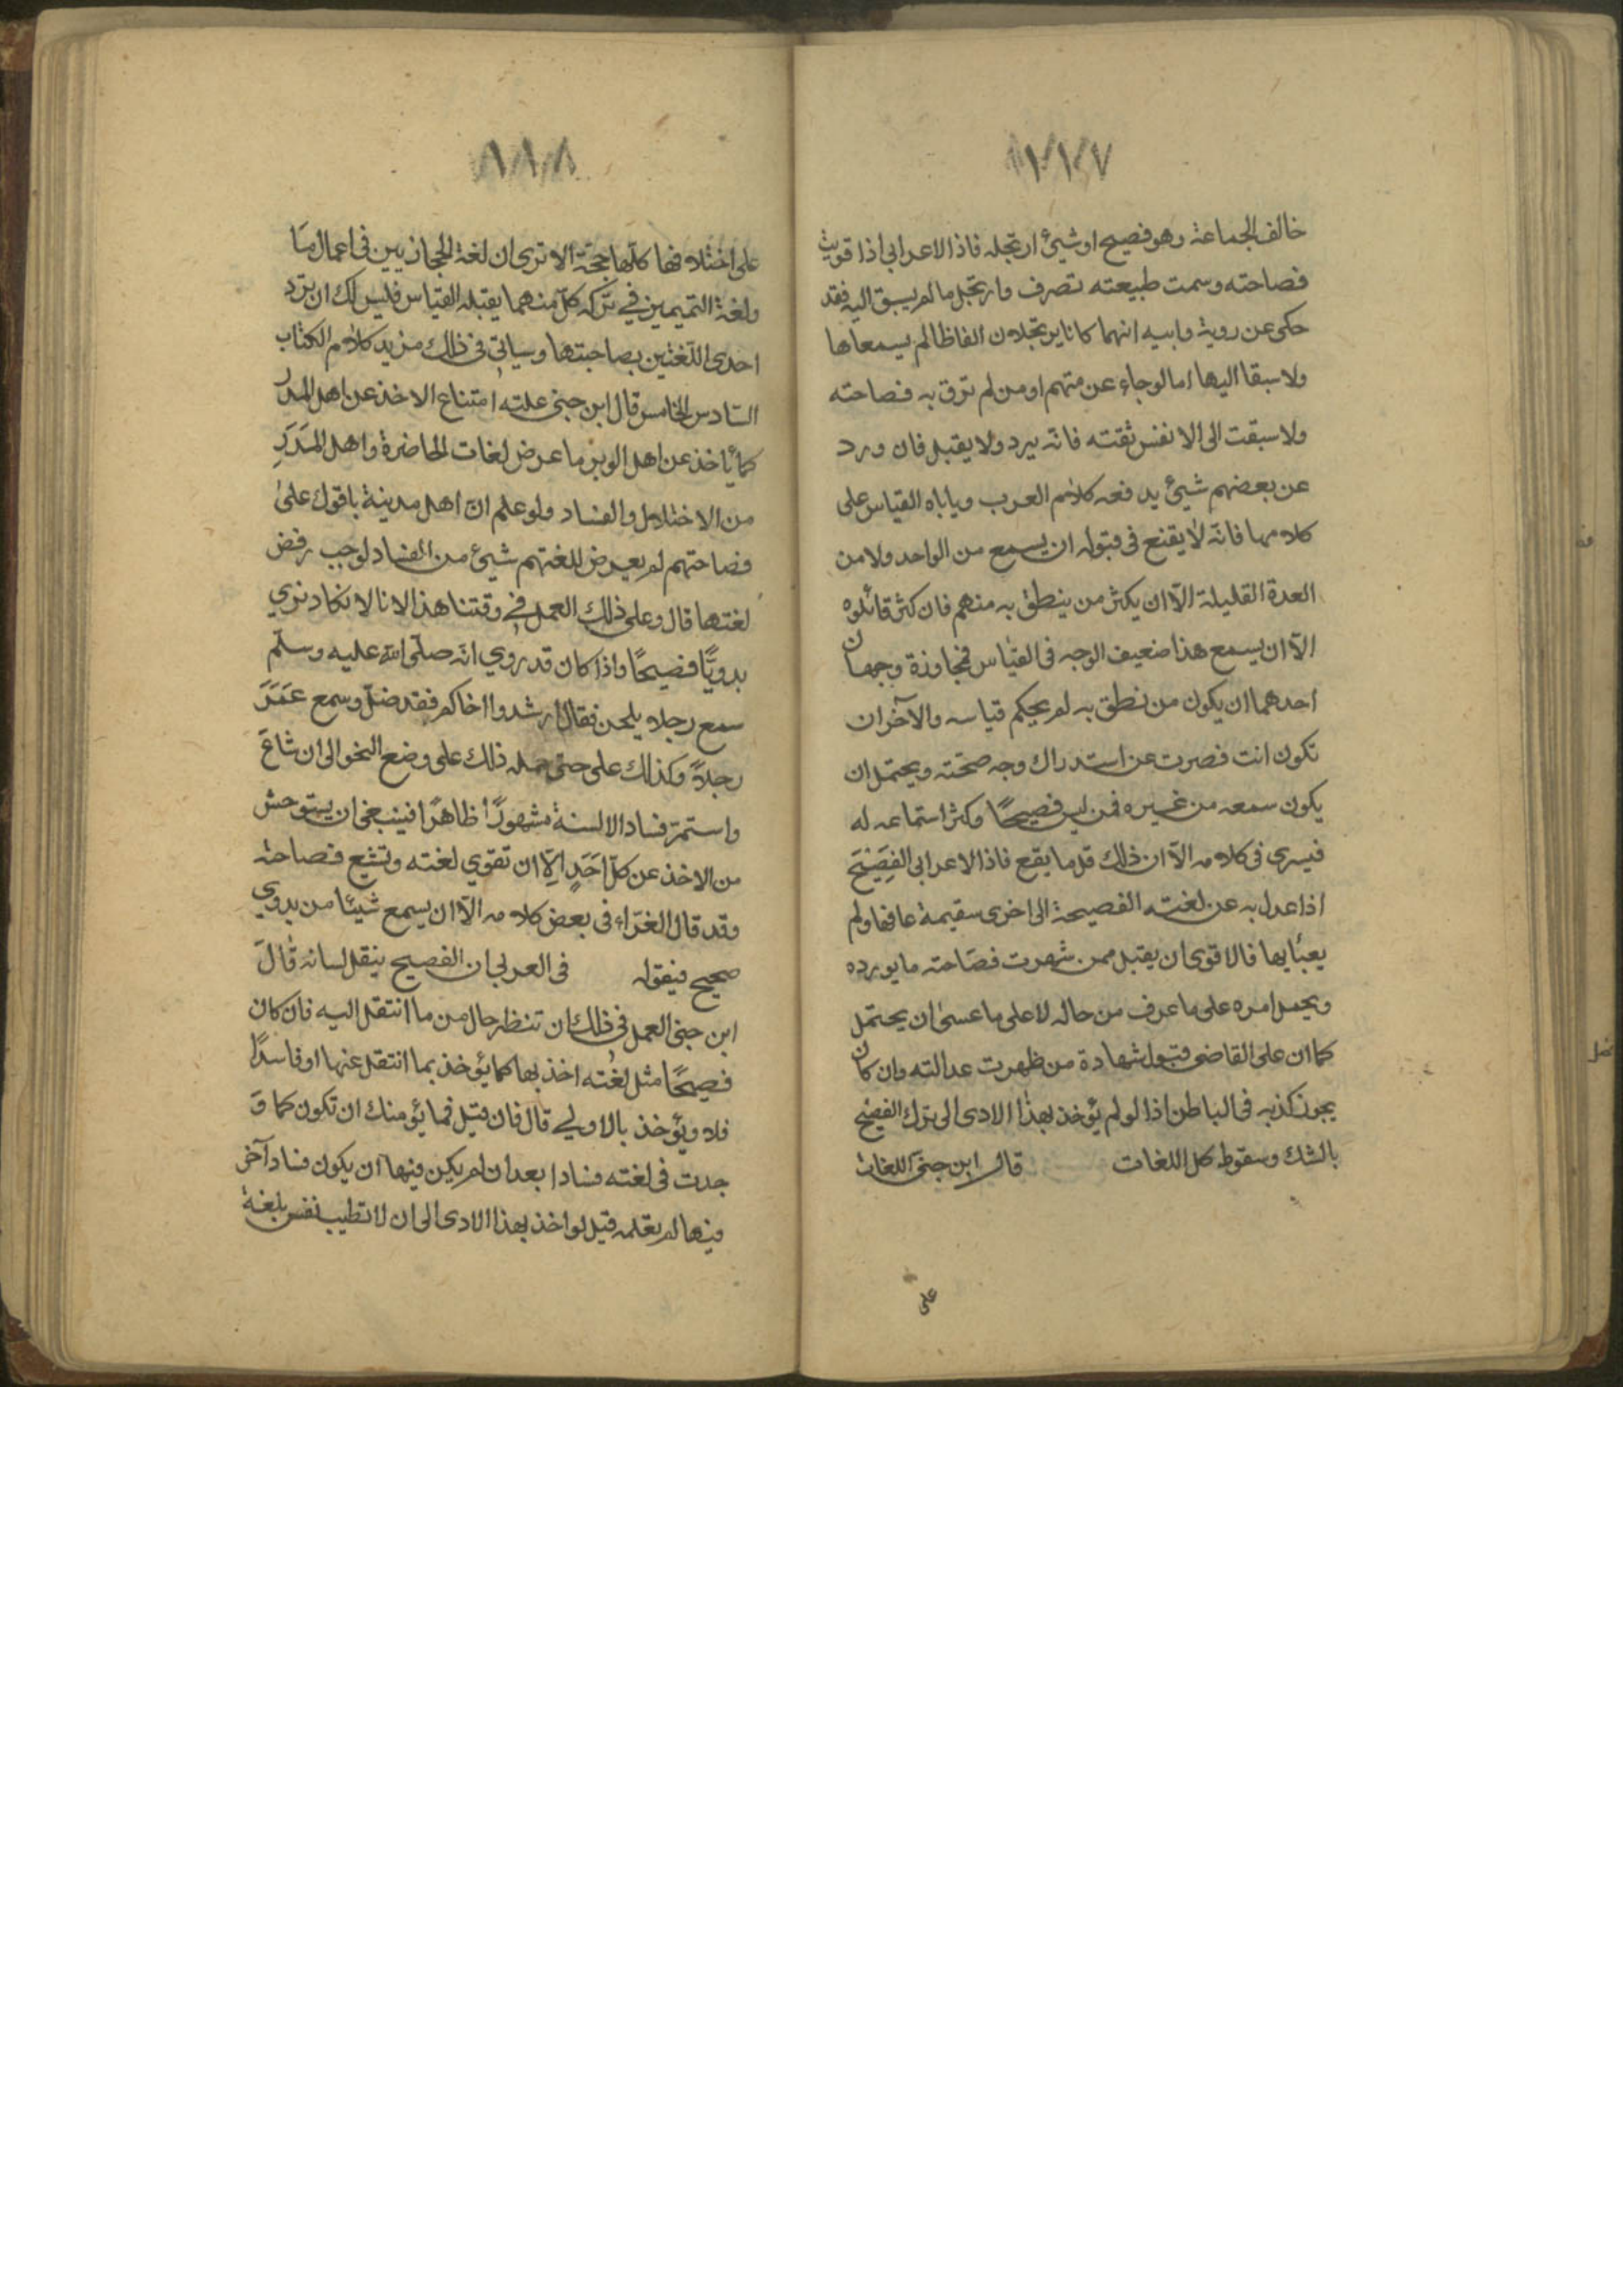 خالف الجماعة وهو فصيح او شيئ ارتجله فاذا الاعرابي اذا قويت
فصاحته وسمت طبيعته تصرف وارتجل ما لم يسبق اليه فقد
حكى عن روبة وابيه انهما كانا يرتجلان الفاظا لم يسمعاها
ولا سبقا اليها اما لو جاء عن متهم او من لم ترق به فصاحته
ولا سبقت الى الانفس ثقته فانه يرد ولا يقبل فان ورد
عن بعضهم شيئ يدفعه كلام العرب وياباه القياس على
كلامها فانه لا يقنع فى قبوله ان يسمع من الواحد ولا من
العدة القليلة الّا ان يكثر من ينطق به منهم فان كثر قائلوه
الّا ان يسمع هذا ضعيف الوجه فى القياس فمجاوزة وجهان
احدهما ان يكون من نطق به لم يحكم قياسه والآخر ان
تكون انت قصرت عن استدراك وجه صحّته ويحتمل ان
يكون سمعه من غيره فمن ليس فصيحًا وكثر استماعه له
فيسري فى كلامه الّا ان ذلك قل ما يقع فاذا الاعرابى الفصيح
اذا عدل به عن لغته الفصيحة الى اخرى سقيمة عافها ولم
يعبُأ بها فالاقوى ان يقبل ممن شهرت فصاحته ما يورده
ويحمل امره على ما عرف من حاله لا على ما عسى ان يحتمل
كما ان على القاضى قبول شهادة من ظهرت عدالته وان كان
يجوز كذبه فى الباطن اذا لو لم يؤخذ بهذا الادى الى ترك الفصيح
بالشك وسقوط كل اللغات قال ابن جنى اللغات
على
على اختلافها كلّها حجّة الا ترى ان لغة الحجازيين فى اعمال مَا
ولغة التميمين في تركه كلّ منهما يقبله القياس فليس لك ان تردّ
احدى اللّغتين بصاحبتها وسيأتى فى ذلك مزيد كلام الكتاب
السّادس الخامس قال ابن جنى علته امتناع الاخذ عن اهل المدر
كما يأخذ عن اهل الوبر ما عرض لغات الحاضرة واهل المَدَرِ
من الاختلال والفساد ولو علم انّ اهل مدينة باقون على
فصاحتهم لم يعرض للغتهم شيئ من الفساد لوجب رفض
لغتها قال وعلى ذلك العمل في وقتنا هذا لانا لا نكاد نري
بدويًّا فصيحًا واذا كان قد روي انه صلّى الله عليه وسلّم
سمع رجلا يلحن فقال ارشدوا اخاكم فقد ضلّ وسمع عَمَرَ
رجلاً وكذلك على حتى حمله ذلك على وضع النحو الى ان شاعَ
واستمرّ فساد الالسنة مشهورًا ظاهرًا فينبغى ان يستوحش
من الاخذ عن كلّ اَحَدٍ الّا ان تقوي لغته وتشع فصاحته
وقد قال الفرّاء فى بعض كلامه الّا ان يسمع شيئا من بدوي
صحيح فيقوله فى العربى ان الفصيح ينقل لسانه قَالَ
ابن جنى العمل فى ذلك ان تنظر حال من ما انتقل اليه فان كان
فصيحًا مثل لغته اخذ بها كما يؤخذ بما انتقل عنها او فاسدًا
فلا ويؤخذ بالاولي قال فان قيل فما يؤمنك ان تكون كما وَ
جدت فى لغته فسادا بعد ان لم يكن فيها ان يكون فساد آخر
فيها لم تعلمه قيل لو اخذ بهذا الادى الى ان لا تطيب نفس بلغة